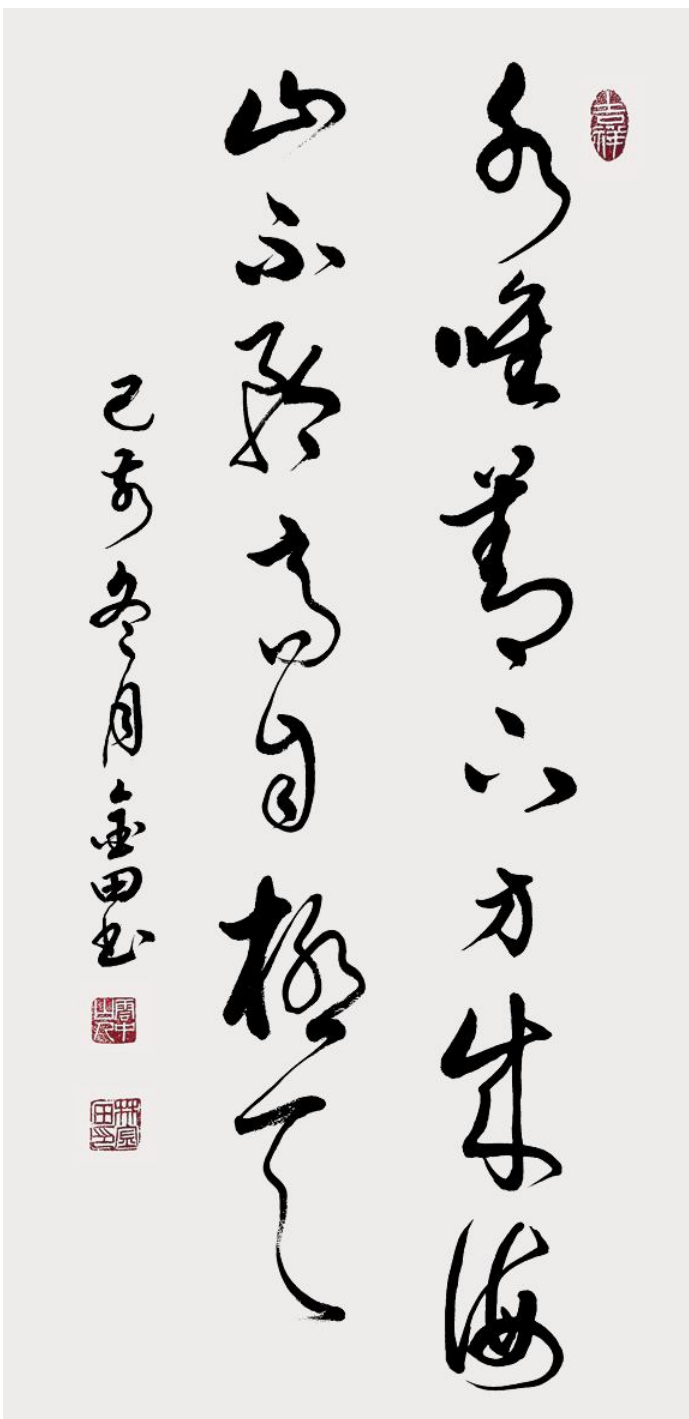 吉祥
水唯善下方成海
山不矜高自極天
己亥冬月金田书
林金田印